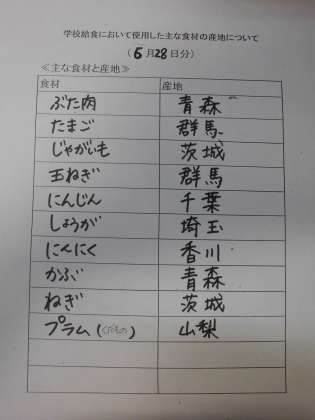 学校給食において使用した主な食材の産地について
(6月28日分)
≪主な食材と産地≫
食材 産地
ぶた肉 青森
たまご 群馬
じゃがいも 茨城
玉ねぎ 群馬
にんじん 千葉
しょうが 埼玉
にんにく 香川
かぶ 青森
ねぎ 茨城
プラム(くだもの) 山梨